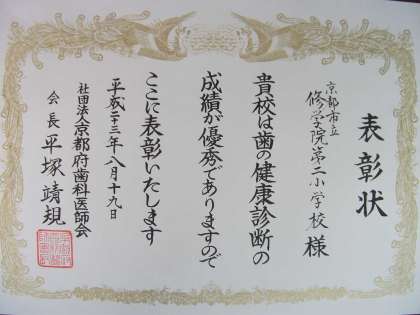 表彰状
京都市立
修学院第二小学校 様
貴校は歯の健康診断の
成績が優秀でありますので
ここに表彰いたします
平成二十三年八月十九日
社団法人京都府歯科医師会
会長 平塚靖規